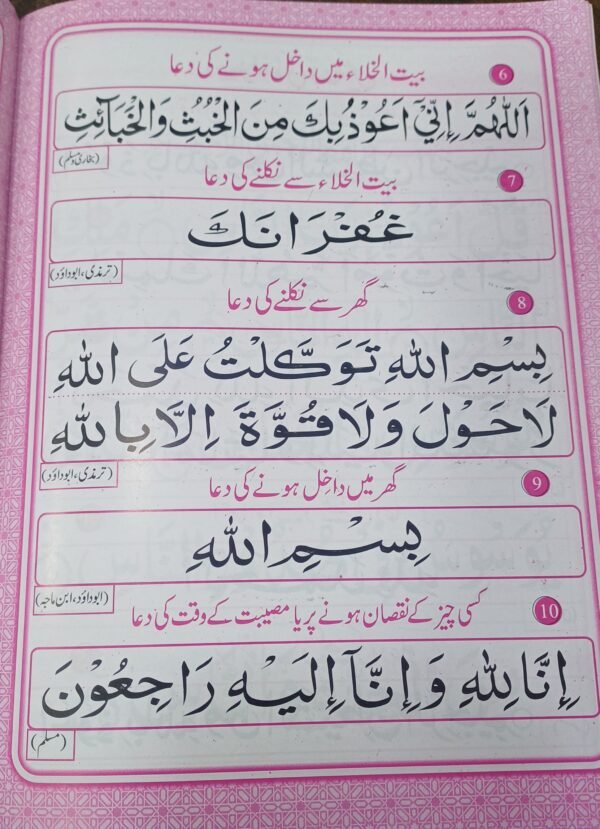 6 بیت الخلاء میں داخل ہونے کی دعا
اَللّٰهُمَّ اِنِّيْٓ اَعُوْذُبِكَ مِنَ الْخُبُثِ وَالْخَبَآئِثِ
(بخاری و مسلم)
7 بیت الخلاء سے نکلنے کی دعا
غُفْرَانَكَ
(ترمذی، ابوداؤد)
8 گھر سے نکلنے کی دعا
بِسْمِ اللهِ تَوَكَّلْتُ عَلَى اللهِ
لَا حَوْلَ وَلَا قُوَّةَ اِلَّا بِاللهِ
(ترمذی، ابوداؤد)
9 گھر میں داخل ہونے کی دعا
بِسْمِ اللهِ
(ابوداؤد، ابن ماجہ)
10 کسی چیز کے نقصان ہونے پر یا مصیبت کے وقت کی دعا
اِنَّا لِلّٰهِ وَاِنَّآ اِلَيْهِ رَاجِعُوْنَ
(مسلم)